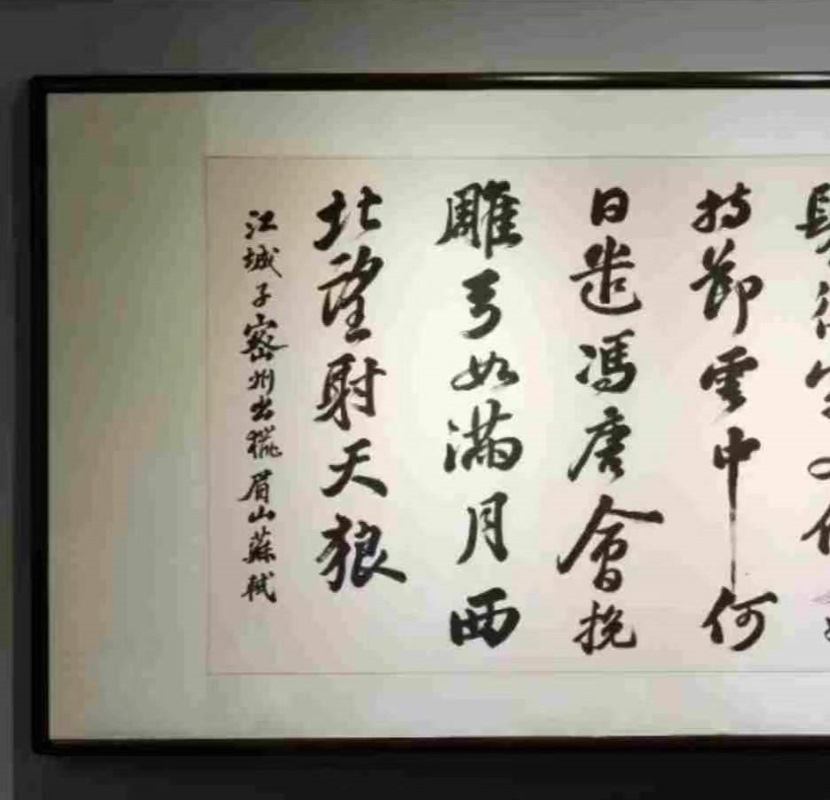 持節雲中何
日遣馮唐會挽
雕弓如滿月西
北望射天狼
江城子密州出獵眉山蘇軾